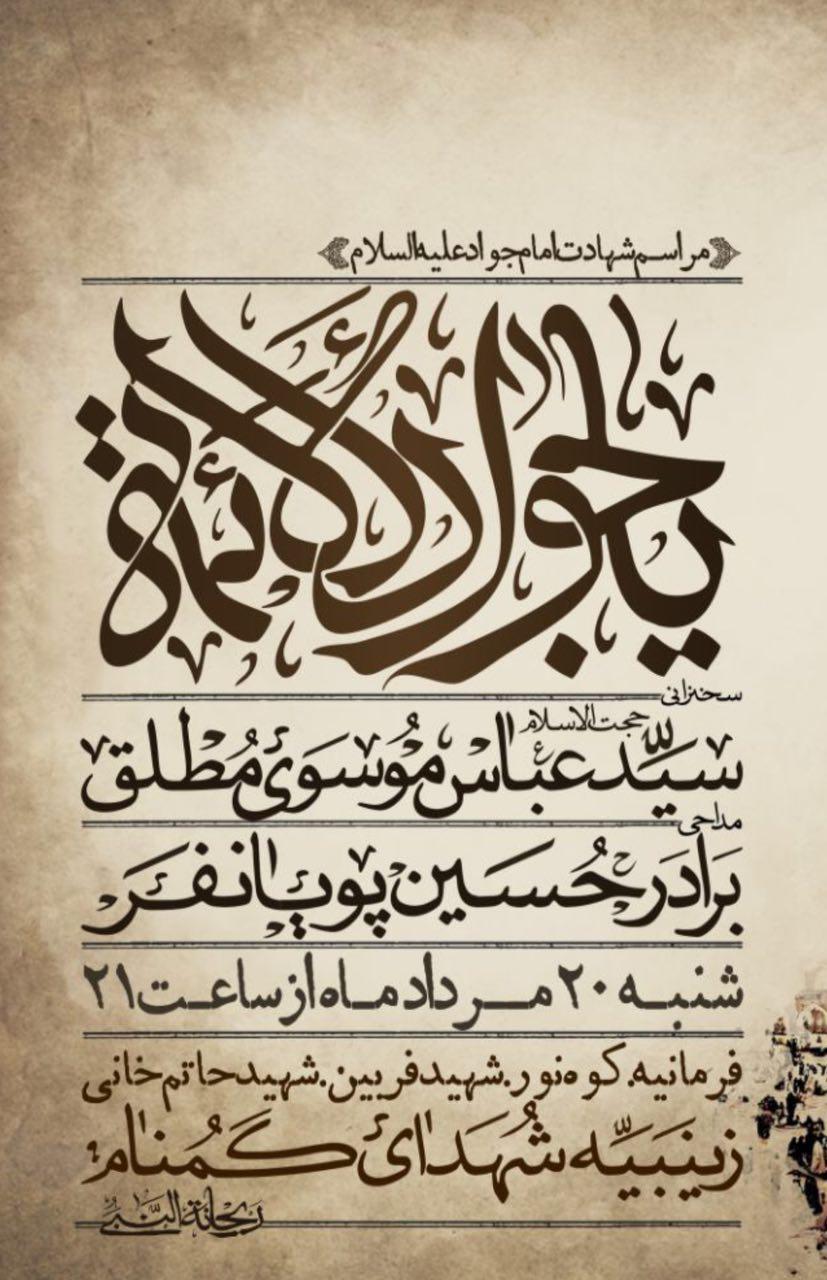 مراسم شهادت امام جواد علیه السلام
یا جواد الائمة
سخنرانی
حجت الاسلام
سیّد عباس موسوی مطلق
مداحی
برادر حسین پویانفر
شنبه ۲۰ مرداد ماه از ساعت ۲۱
فرمانیه. کوه نور. شهید فربین. شهید حاتم خانی
زینبیّه شهدای گمنام
ریحانة النبی